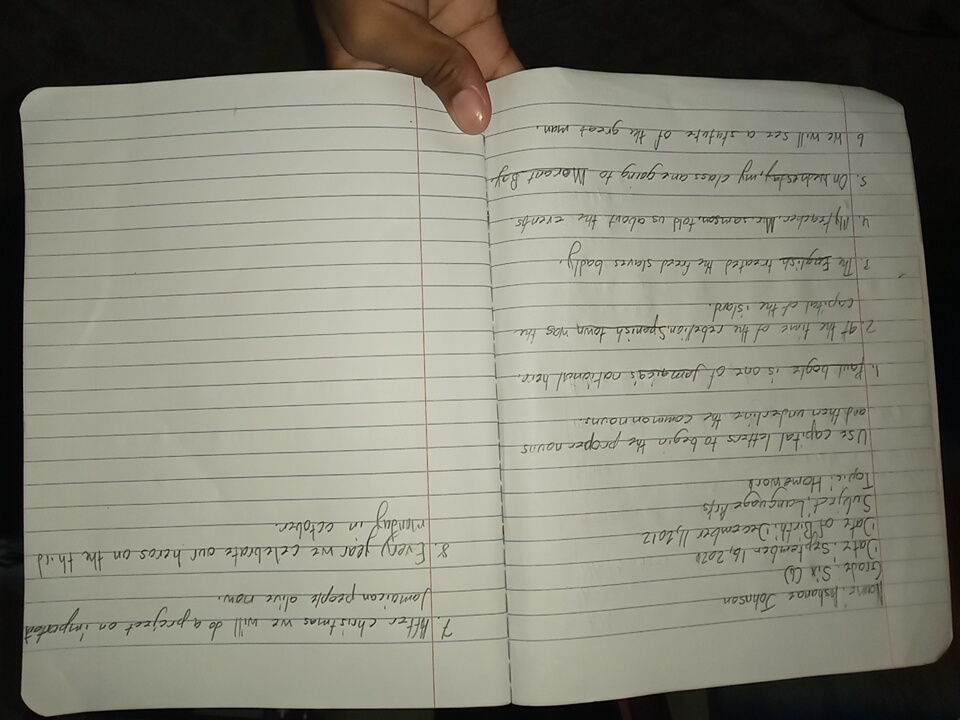 Name: Ashanae Johnson
Grade: Six (6)
Date: September 16, 2020
Date of Birth: December 11, 2012
Subject: Language Arts
Topic: Homework
Use capital letters to begin the proper nouns
and then underline the common nouns.
1. Paul bogle is one of Jamaica's national hero.
2. At the time of the rebelion, Spanish town was the
capital of the island.
3. The English treated the freed slaves badly.
4. My teacher, Mr. samson, told us about the events.
5. On Wednesday, my class are going to Morant Bay
6 We will see a stature of the great man.
7. After christmas we will do a project on important
Jamaican people alive now.
8. Every year we celebrate our heros on the third
monday in october.